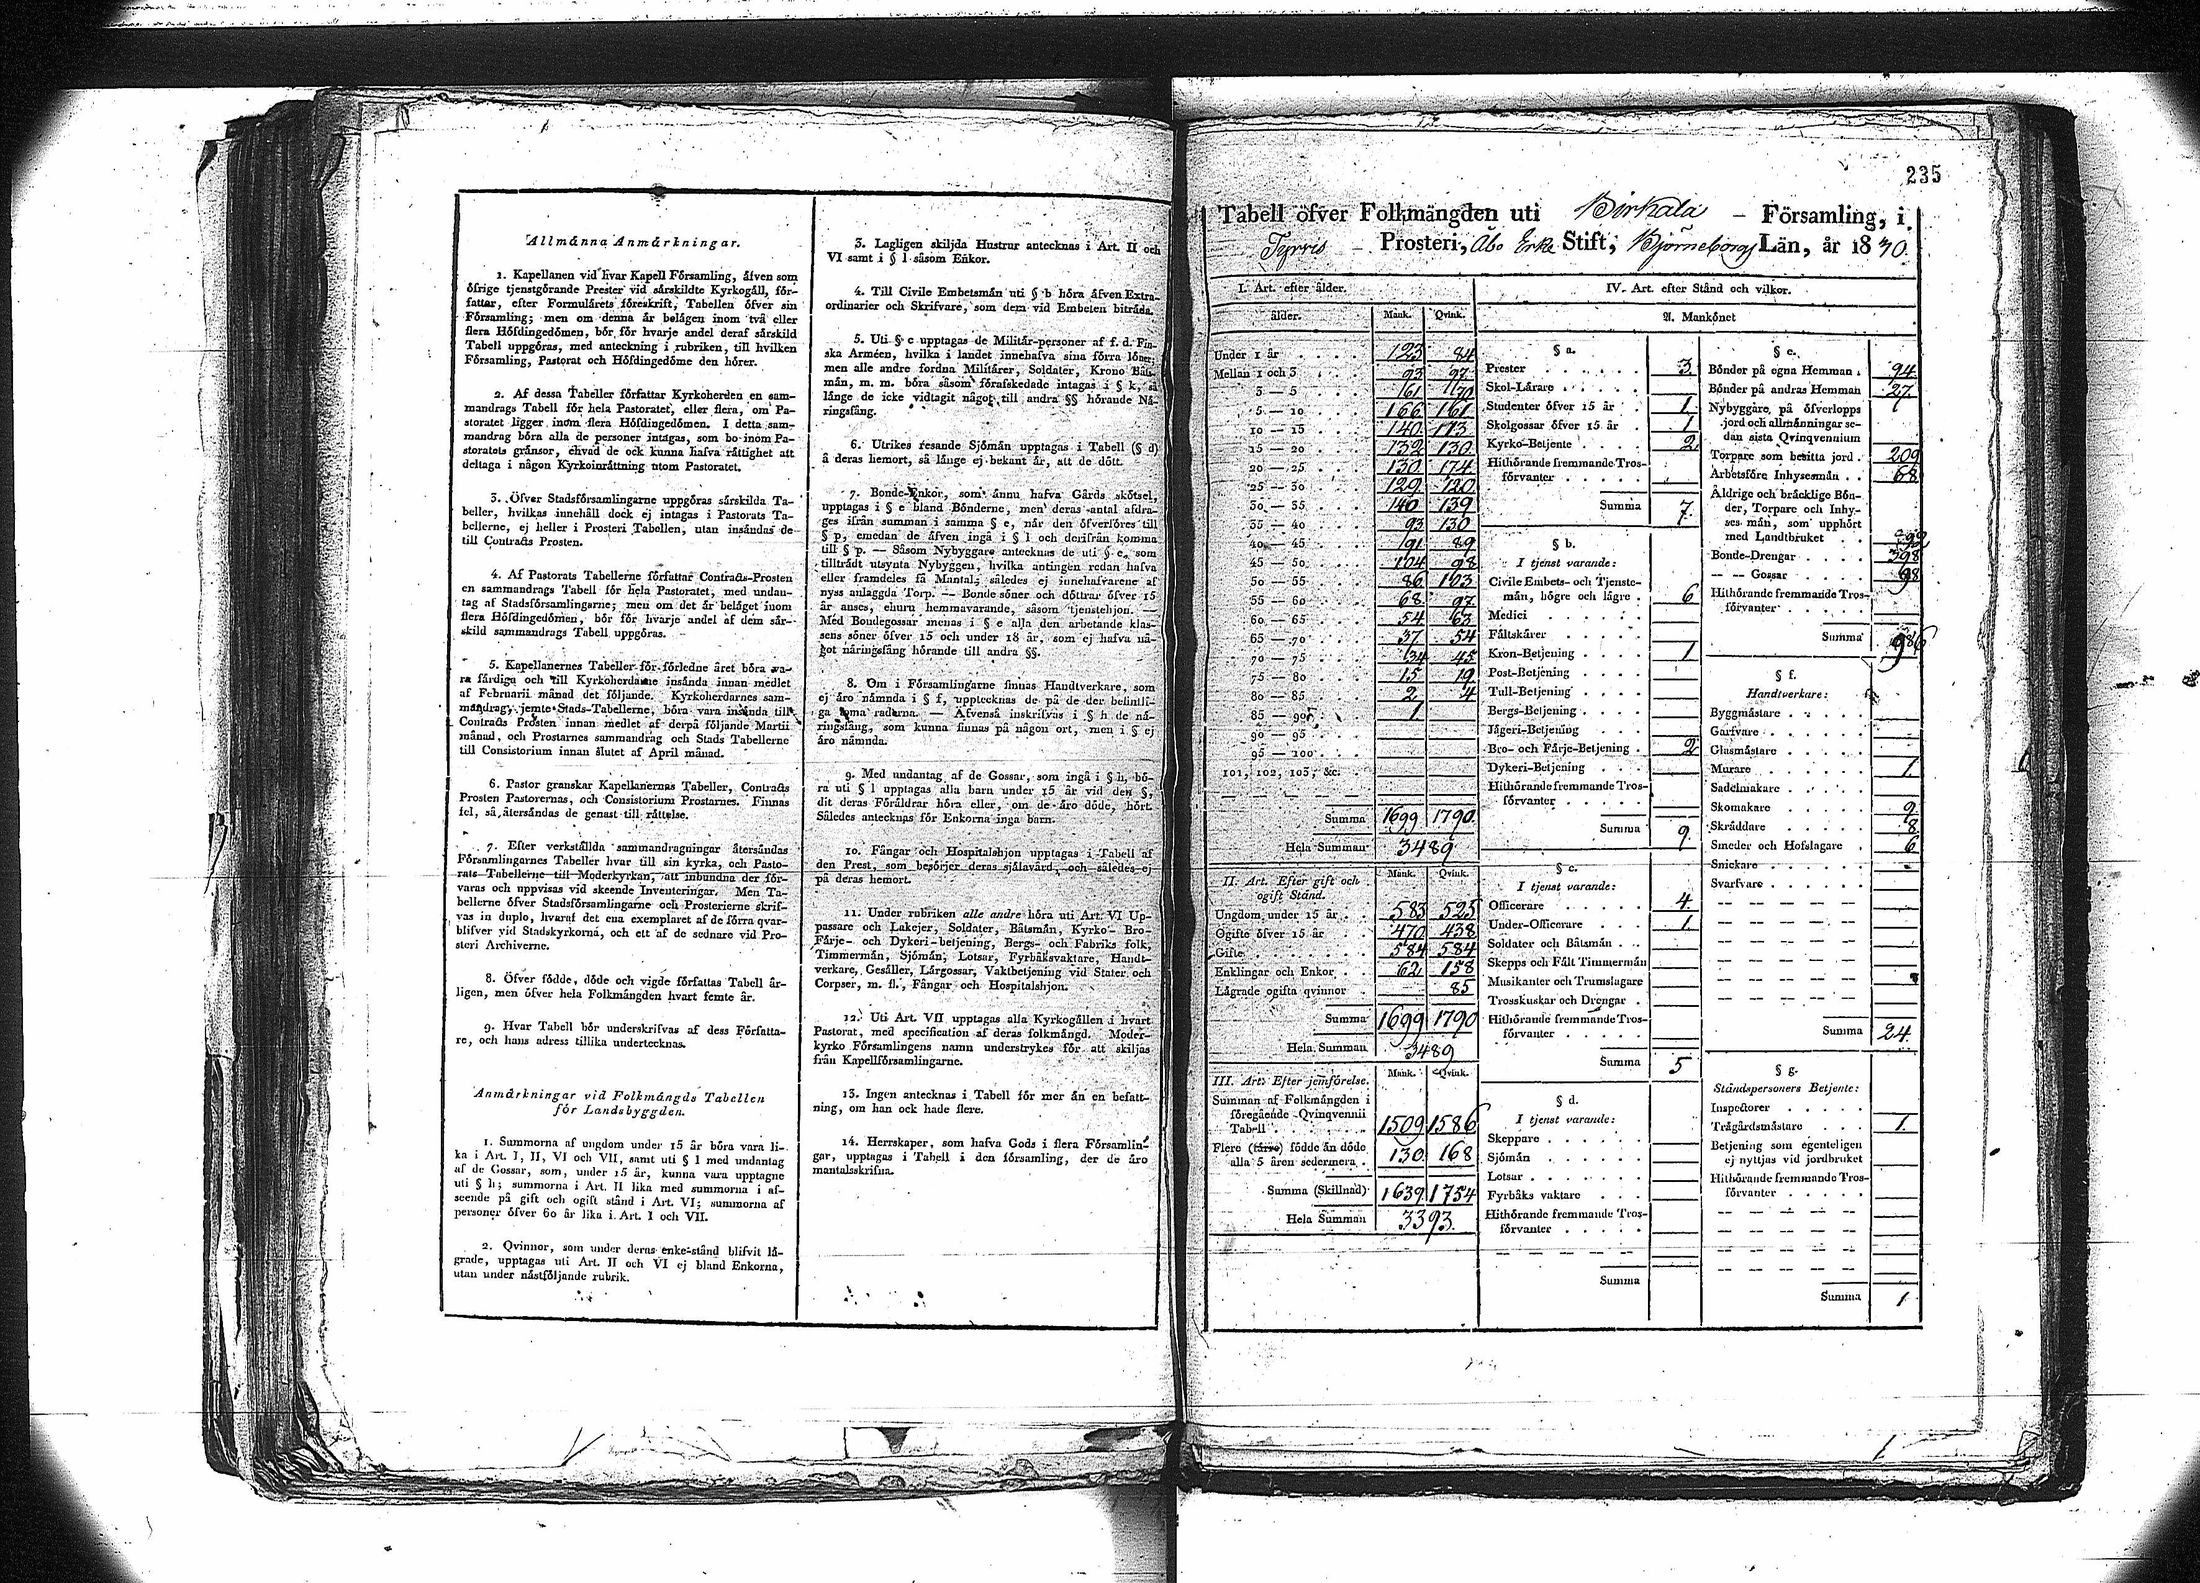 Allmänna Anmärkningar.
1. Kapellanen vid hvar Kapell Församling, äfven som
öfrige tjenstgörande Prester vid särskildte Kyrkogäll, för-
fattar, efter Formulärets föreskrift, Tabellen öfver sin
Församling; men om denna är belägen inom två eller
flera Höfdingedömen, bör för hvarje andel deraf särskild
Tabell uppgöras, med anteckning i rubriken, till hvilken
Församling, Pastorat och Höfdingedöme den hörer.
2. Af dessa Tabeller författar Kyrkoherden en sam-
mandrags Tabell för hela Pastoratet, eller flera, om Pa-
storatet ligger inom flera Höfdingedömen. I detta sam-
mandrag böra alla de personer intagas, som bo inom Pa-
storatets gränsor, ehvad de ock kunna hafva rättighet att
deltaga i någon Kyrkoinrättning utom Pastoratet.
3. Öfver Stadsförsamlingarne uppgöras särskilda Ta-
beller, hvilkas innehåll dock ej intagas i Pastorats Ta-
bellerne, ej heller i Prosteri Tabellen, utan insändas de
till Contracts Prosten.
4. Af Pastorats Tabellerne författar Contracts-Prosten
en sammandrags Tabell för hela Pastoratet, med undan-
tag af Stadsförsamlingarne; men om det är beläget inom
flera Höfdingedömen, bör för hvarje andel af dem sär-
skild sammandrags Tabell uppgöras.
5. Kapellanernes Tabeller för förledne året böra va-
ra färdiga och till Kyrkoherdarne insända innan medlet
af Februarii månad det följande. Kyrkoherdarnes sam-
mandrag, jemte Stads-Tabellerne, böra vara insända till
Contracts Prosten innan medlet af derpå följande Martii
månad, och Prostarnes sammandrag och Stads Tabellerne
till Consistorium innan slutet af April månad.
6. Pastor granskar Kapellanernas Tabeller, Contracts
Prosten Pastorernas, och Consistorium Prostarnes. Finnas
fel, så återsändas de genast till rättelse.
7. Efter verkställda sammandragningar återsändas
Församlingarnes Tabeller hvar till sin kyrka, och Pasto-
rats Tabellerne till Moderkyrkan, att inbundna der för-
varas och uppvisas vid skeende Inventeringar. Men Ta-
bellerne öfver Stadsförsamlingarne och Prosterierne skrif-
vas in duplo, hvaraf det ena exemplaret af de förra qvar-
blifver vid Stadskyrkorna, och ett af de sednare vid Pro-
steri Archiverne.
8. Öfver födde, döde och vigde författas Tabell år-
ligen, men öfver hela Folkmängden hvart femte år.
9. Hvar Tabell bör underskrifvas af dess Författa-
re, och hans adress tillika undertecknas.
Anmärkningar vid Folkmängds Tabellen
för Landsbyggden.
1. Summorna af ungdom under 15 år böra vara li-
ka i Art. I, II, VI och VII, samt uti § l med undantag
af de Gossar, som, under 15 år, kunna vara upptagne
uti § h; summorna i Art. II lika med summorna i af-
seende på gift och ogift stånd i Art. VI; summorna af
personer öfver 60 år lika i Art. I och VII.
2. Qvinnor, som under deras enke-stånd blifvit lä-
grade, upptagas uti Art. II och VI ej bland Enkorna,
utan under nästföljande rubrik.
3. Lagligen skiljda Hustrur antecknas i Art. II och
VI samt i § l såsom Enkor.
4. Till Civile Embetsmän uti § b höra äfven Extra-
ordinarier och Skrifvare, som dem vid Embeten biträda.
5. Uti § c upptagas de Militär-personer af f. d. Fin-
ska Arméen, hvilka i landet innehafva sina förra löner;
men alle andre fordna Militärer, Soldater, Krono Båts-
män, m. m. böra såsom förafskedade intagas i § k, så
länge de icke vidtagit något till andra §§ hörande Nä-
ringsfång.
6. Utrikes resande Sjömän upptagas i Tabell (§ d)
å deras hemort, så länge ej bekant är, att de dött.
7. Bonde-Enkor, som ännu hafva Gårds skötsel,
upptagas i § e bland Bönderne, men deras antal afdra-
ges ifrån summan i samma § e, när den öfverföres till
§ p, emedan de äfven ingå i § l och derifrån komma
till § p. — Såsom Nybyggare antecknas de uti § e, som
tillträdt utsynta Nybyggen, hvilka antingen redan hafva
eller framdeles få Mantal; således ej innehafvarene af
nyss anlaggda Torp. — Bonde söner och döttrar öfver 15
år anses, ehuru hemmavarande, såsom tjenstehjon. —
Med Bondegossar menas i § e alla den arbetande klas-
sens söner öfver 15 och under 18 år, som ej hafva nå-
got näringsfång hörande till andra §§.
8. Om i Församlingarne finnas Handtverkare, som
ej äro nämnda i § f, upptecknas de på de der befintli-
ga toma raderna. — Äfvenså inskrifvas i § h de nä-
ringsfång, som kunna finnas på någon ort, men i § ej
äro nämnda.
9. Med undantag af de Gossar, som ingå i § h, bö-
ra uti § l upptagas alla barn under 15 år vid den §,
dit deras Föräldrar höra eller, om de äro döde, hört.
Således antecknas för Enkorna inga barn.
10. Fångar och Hospitalshjon upptagas i Tabell af
den Prest, som besörjer deras själavård, och således ej
på deras hemort.
11. Under rubriken alle andre höra uti Art. VI Up-
passare och Lakejer, Soldater, Båtsmän, Kyrko- Bro-
Färje- och Dykeri-betjening, Bergs- och Fabriks folk,
Timmermän, Sjömän, Lotsar, Fyrbåksvaktare, Handt-
verkare, Gesäller, Lärgossar, Vaktbetjening vid Stater och
Corpser, m. fl., Fångar och Hospitalshjon.
12. Uti Art. VII upptagas alla Kyrkogällen i hvart
Pastorat, med specification af deras folkmängd. Moder-
kyrko Församlingens namn understrykes för att skiljas
från Kapellförsamlingarne.
13. Ingen antecknas i Tabell för mer än en befatt-
ning, om han ock hade flere.
14. Herrskaper, som hafva Gods i flera Församlin-
gar, upptagas i Tabell i den församling, der de äro
mantalsskrifna.
235
Tabell öfver Folkmängden uti Birkala Församling, i
Tyrvis Prosteri, Åbo Erke Stift, Björneborgs Län, år 1830.
I. Art. efter ålder.
ålder. Mank. Qvink.
Under 1 år 123 84
Mellan 1 och 3 93 97
3 — 5 61 70
5 — 10 166 161
10 — 15 140 113
15 — 20 132 130
20 — 25 130 174
25 — 30 129 120
30 — 35 140 139
35 — 40 93 130
40 — 45 91 89
45 — 50 104 98
50 — 55 86 103
55 — 60 68 97
60 — 65 54 63
65 — 70 37 54
70 — 75 34 45
75 — 80 15 19
80 — 85 2 4
85 — 90 1
90 — 95
95 — 100
101, 102, 103, &c.
Summa 1699 1790
Hela Summan 3489
II. Art. Efter gift och Mank. Qvink.
ogift Stånd.
Ungdom under 15 år 583 525
Ogifte öfver 15 år 470 438
Gifte 584 584
Enklingar och Enkor 62 158
Lägrade ogifta qvinnor 85
Summa 1699 1790
Hela Summan 3489
III. Art. Efter jemförelse. Mank. Qvink.
Summan af Folkmängden i
föregående Qvinqvennii
Tabell 1509 1586
Flere (färre) födde än döde
alla 5 åren sedermera 130 168
Summa (Skillnad) 1639 1754
Hela Summan 3393
IV. Art. efter Stånd och vilkor.
A. Mankönet
§ a.
Prester 3
Skol-Lärare
Studenter öfver 15 år 1
Skolgossar öfver 15 år 1
Kyrko-Betjente 2
Hithörande fremmande Tros-
förvanter
Summa 7
§ b.
I tjenst varande:
Civile Embets- och Tjenste-
män, högre och lägre 6
Medici
Fältskärer
Kron-Betjening 1
Post-Betjening
Tull-Betjening
Bergs-Betjening
Jägeri-Betjening
Bro- och Färje-Betjening 2
Dykeri-Betjening
Hithörande fremmande Tros-
förvanter
Summa 9
§ c.
I tjenst varande:
Officerare 4
Under-Officerare 1
Soldater och Båtsmän
Skepps och Fält Timmermän
Musikanter och Trumslagare
Trosskuskar och Drengar
Hithörande fremmande Tros-
förvanter
Summa 5
§ d.
I tjenst varande:
Skeppare
Sjömän
Lotsar
Fyrbåks vaktare
Hithörande fremmande Tros-
förvanter
Summa
§ e.
Bönder på egna Hemman 94
Bönder på andras Hemman 27
Nybyggare, på öfverlopps
jord och allmänningar se-
dan sista Qvinqvennium
Torpare som besitta jord 209
Arbetsföre Inhysesmän 68
Äldrige och bräcklige Bön-
der, Torpare och Inhy-
ses män, som upphört
med Landtbruket
Bonde-Drengar 398
— — Gossar 98
Hithörande fremmande Tros-
förvanter
Summa 986
§ f.
Handtverkare:
Byggmästare
Garfvare
Glasmästare
Murare 1
Sadelmakare
Skomakare 9
Skräddare 8
Smeder och Hofslagare 6
Snickare
Svarfvare
Summa 24
§ g.
Ståndspersoners Betjente:
Inspectorer
Trägårdsmästare 1
Betjening som egenteligen
ej nyttjas vid jordbruket
Hithörande fremmande Tros-
förvanter
Summa 1